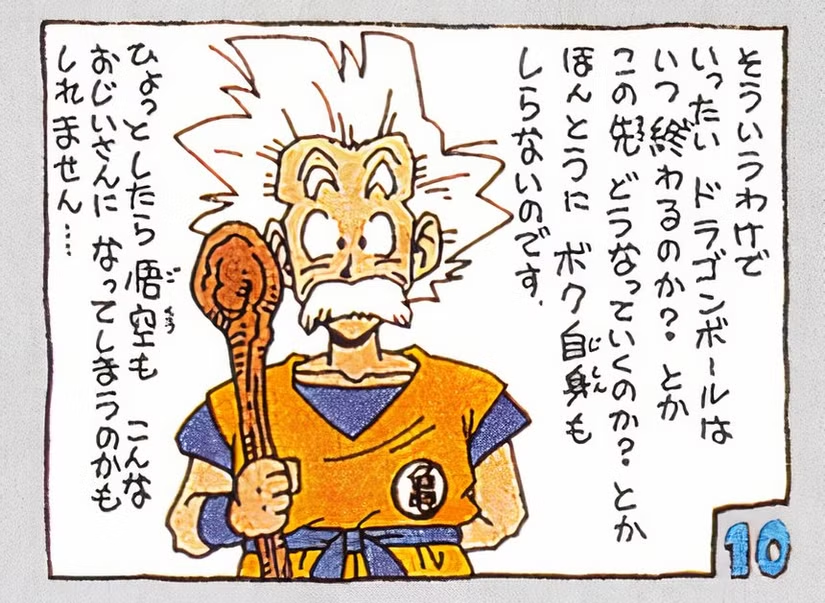 そういうわけで
いったい ドラゴンボールは
いつ終わるのか？とか
この先 どうなっていくのか？とか
ほんとうに ボク自身も
しらないのです.
ひょっとしたら 悟空も こんな
おじいさんに なってしまうのかも
しれません…
10